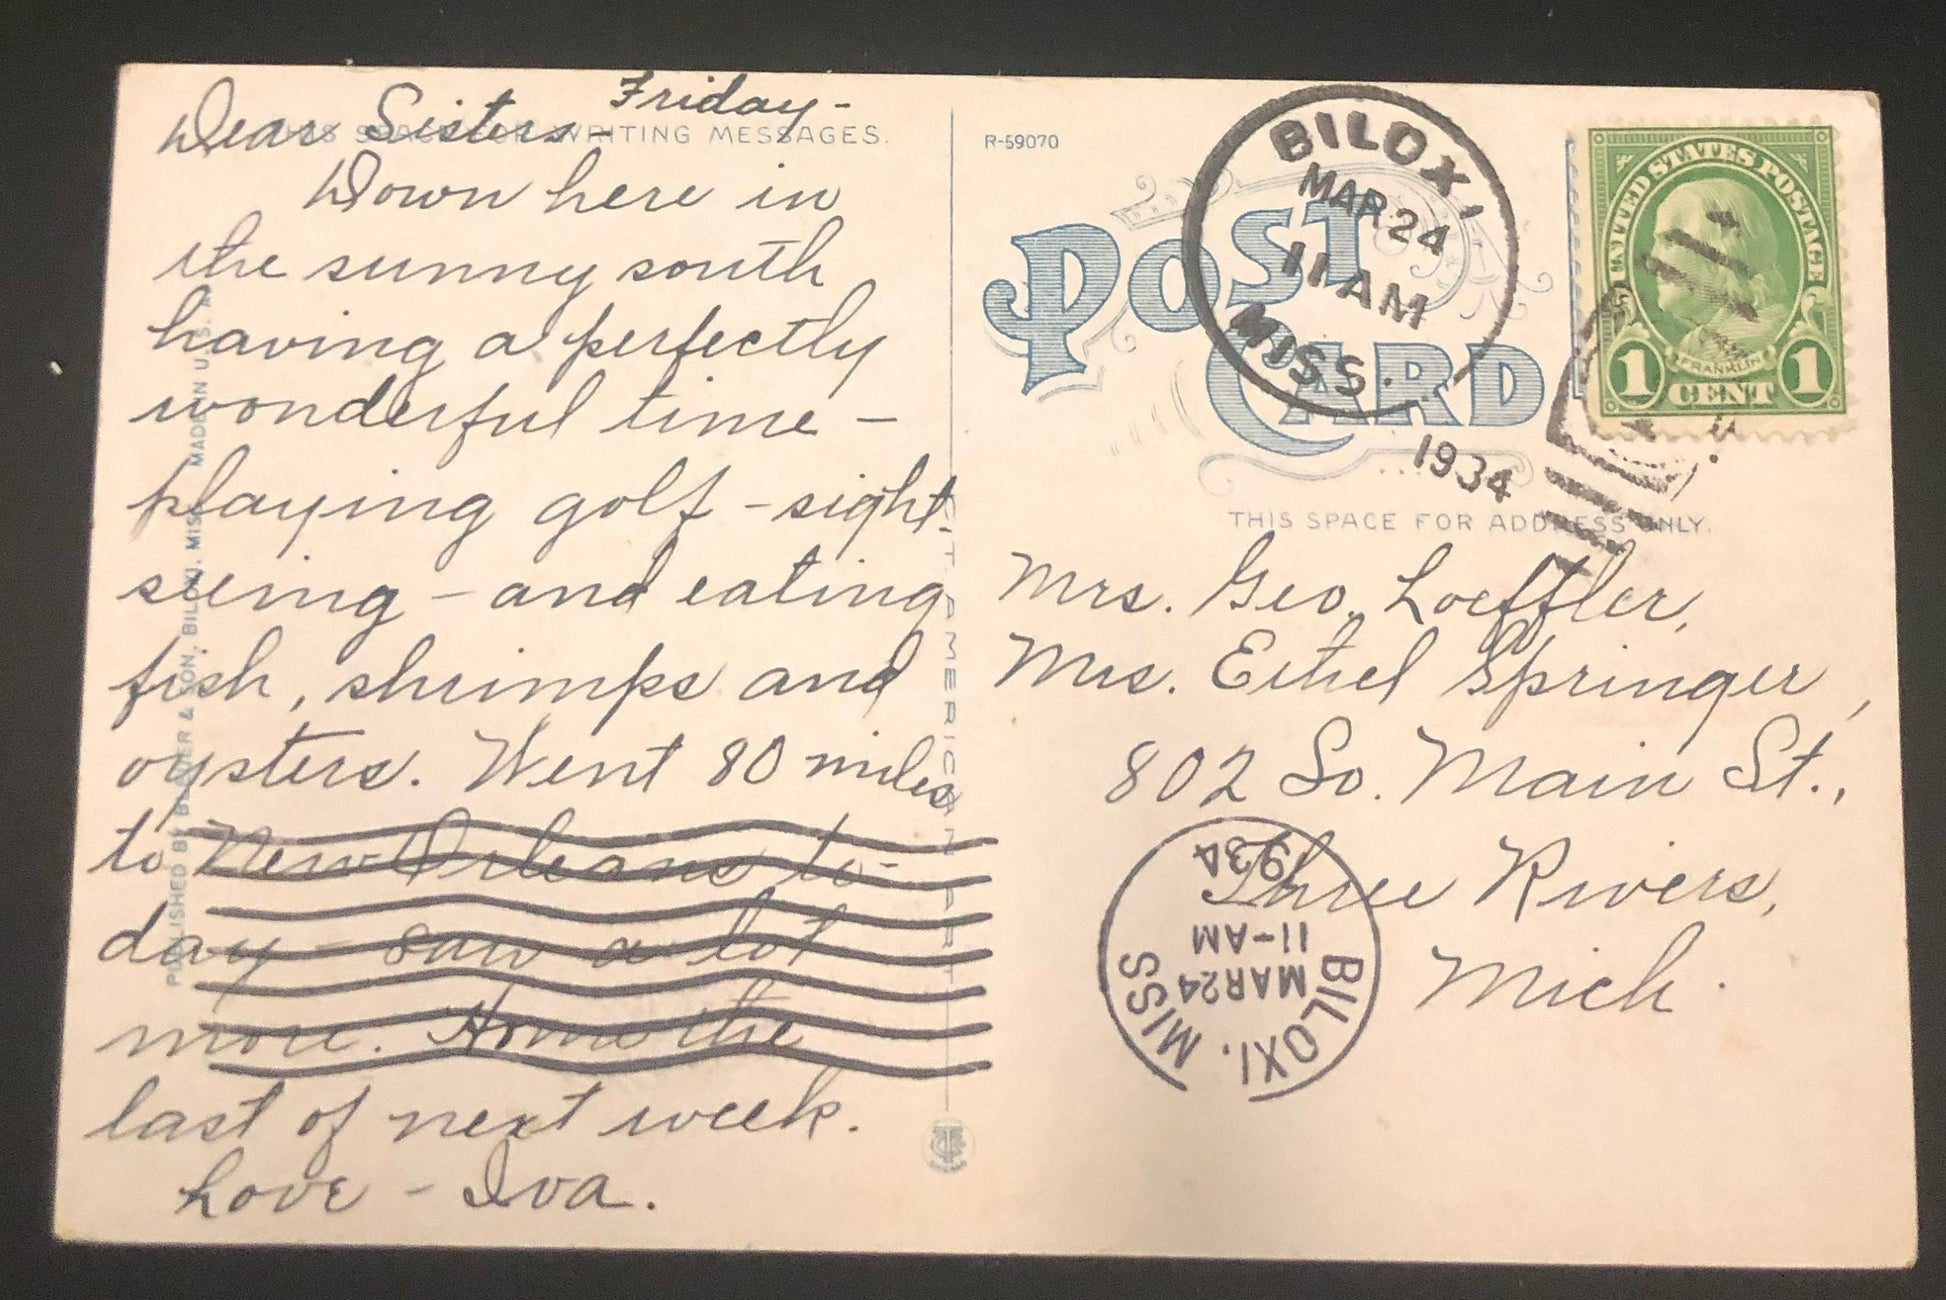 Friday-
Dear Sisters-
Down here in
the sunny south
having a perfectly
wonderful time -
playing golf - sight
seeing - and eating
fish, shrimps and
oysters. Went 80 miles
to New Orleans to-
day - saw a lot
more. Home the
last of next week.
Love - Iva.
WRITING MESSAGES.
PUBLISHED BY & SON, BILOXI, MISS. MADE IN U.S.A.
R-59070
POST
CARD
BILOXI
MAR 24
11 AM
MISS.
1934
UNITED STATES POSTAGE
FRANKLIN
1 CENT 1
THIS SPACE FOR ADDRESS ONLY.
Mrs. Geo. Loeffler,
Mrs. Ethel Springer,
802 So. Main St.,
Three Rivers,
Mich.
BILOXI, MISS
MAR 24
11-AM
1934